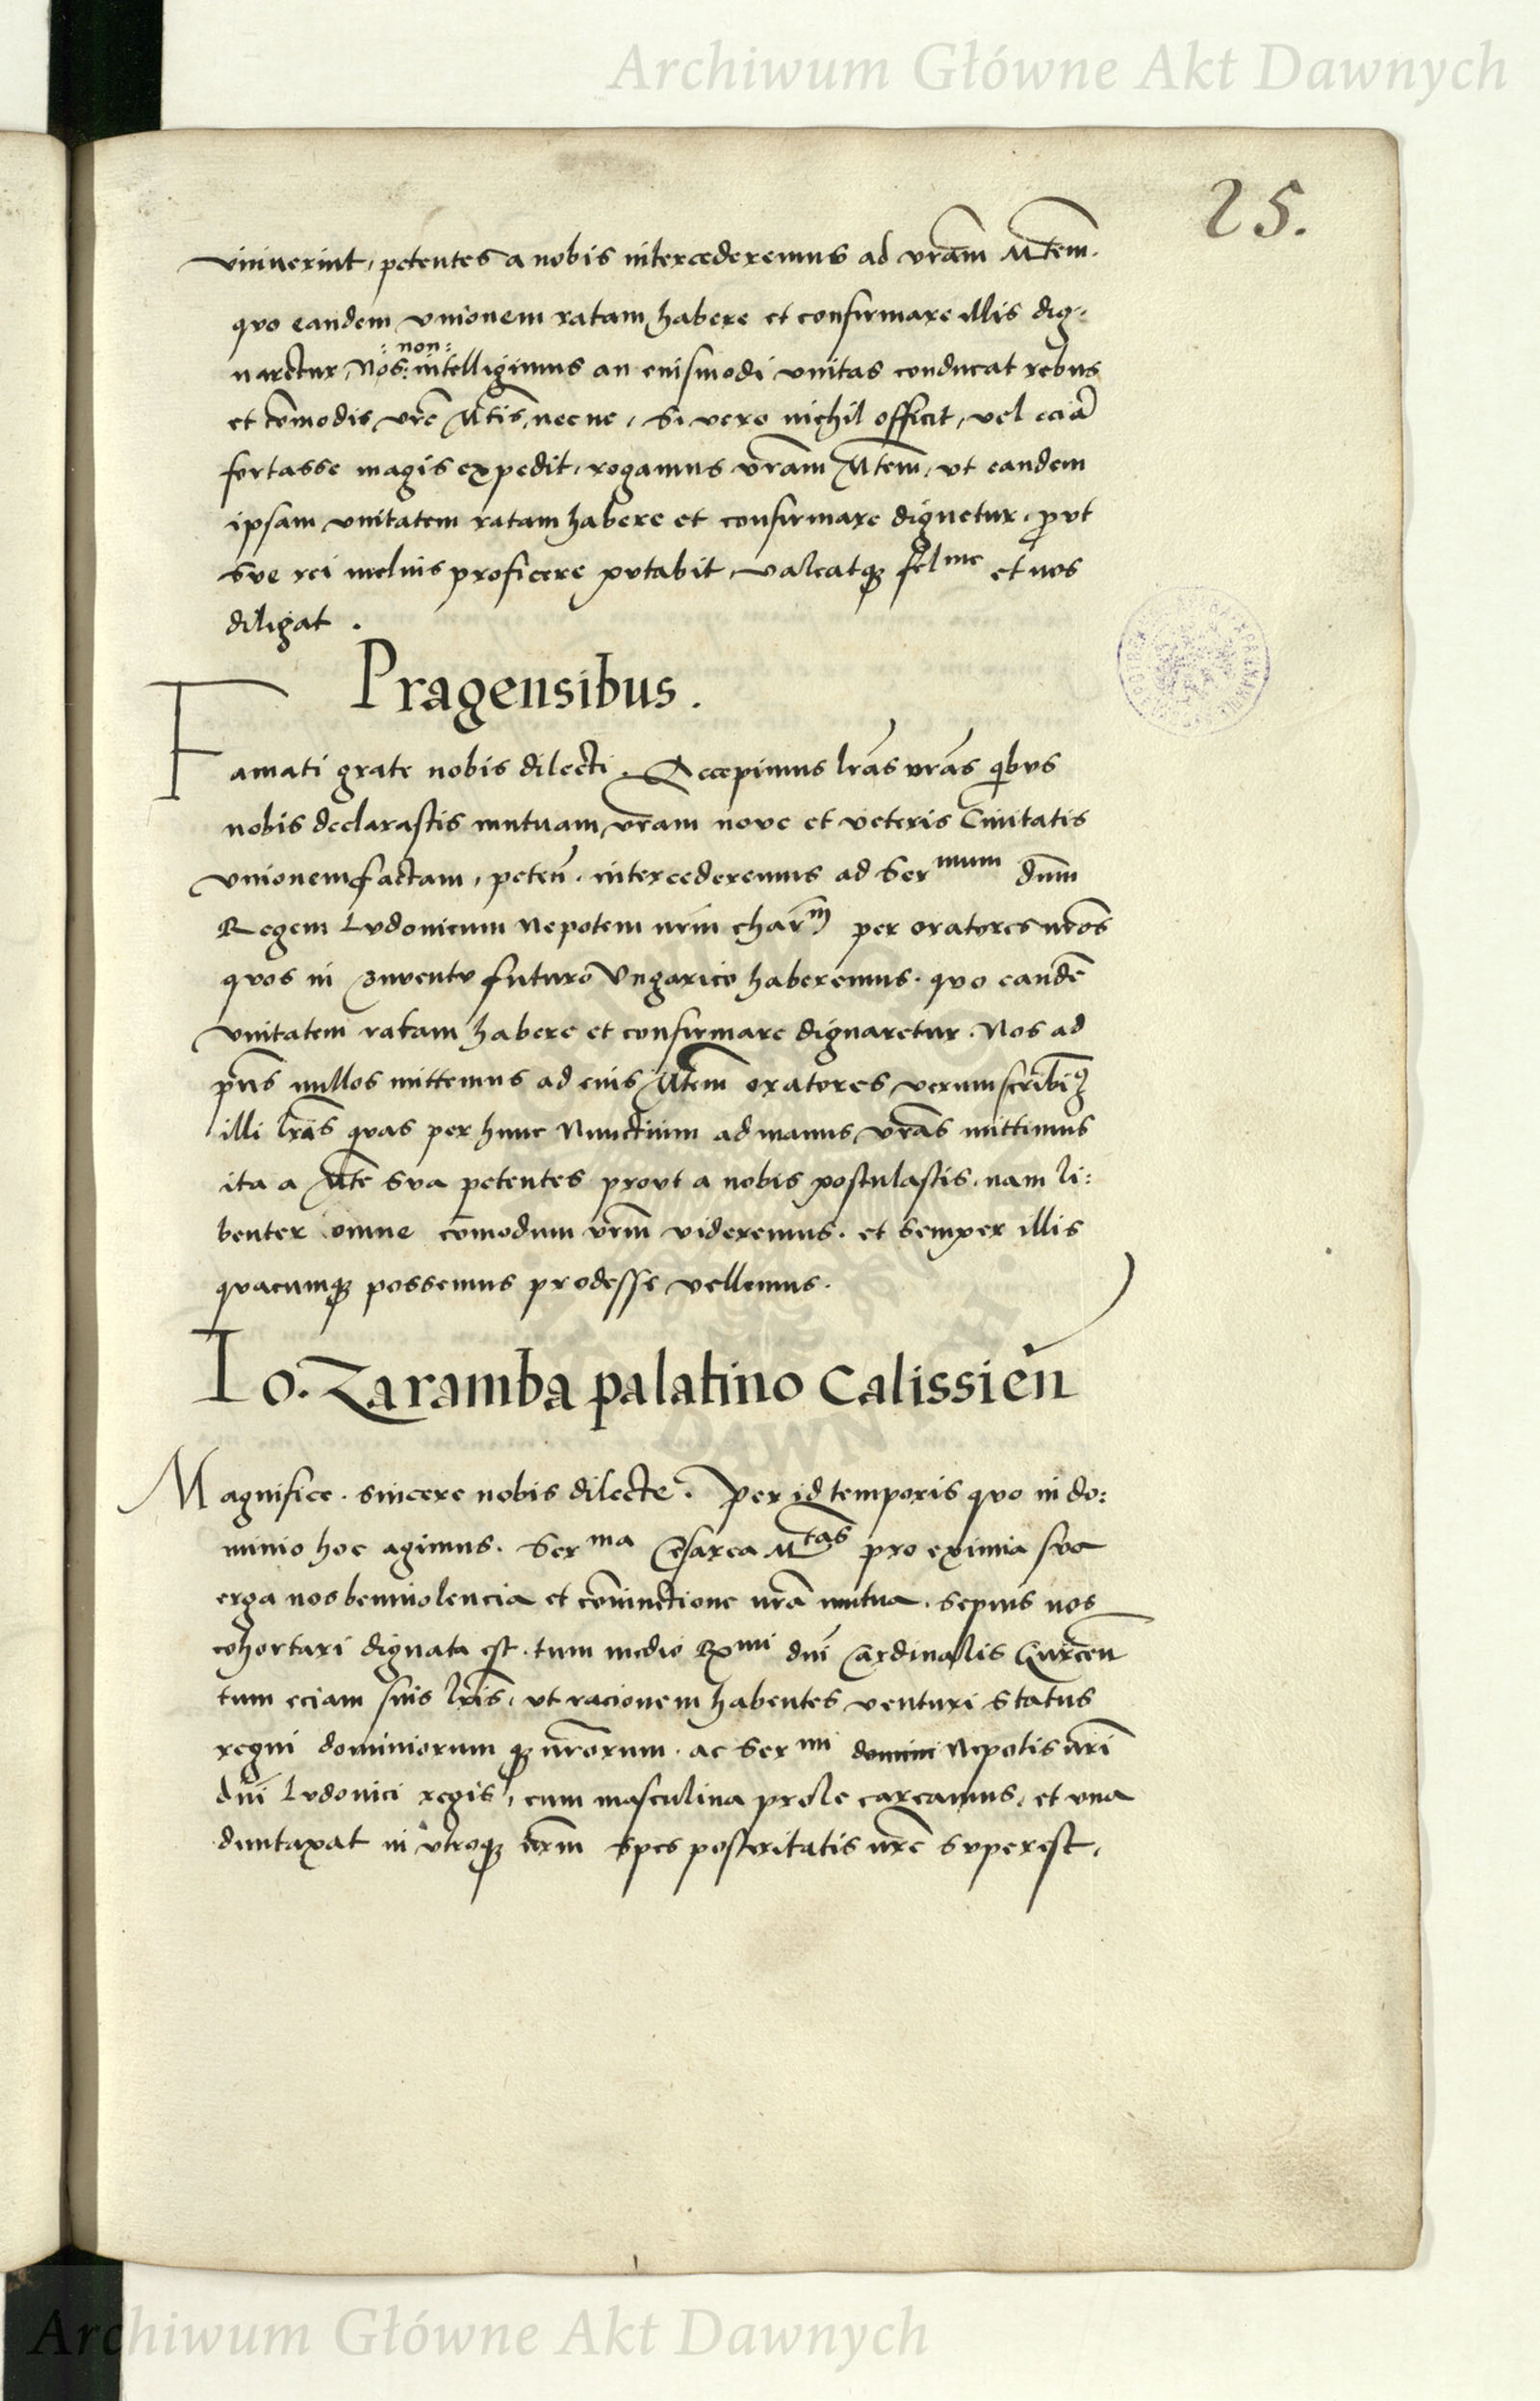 Archiwum Główne Akt Dawnych
25.
viniuerint, petentes a nobis intercederemus ad vrãm Mtem.
quo eandem vnionem ratam habere et confirmare illis dig-
:non:
naretur, Nos: intelligimus an euismodi vnitas conducat rebus
et cõmodis vrẽ Mtis, necne, Si vero nichil officit, vel eciã
fortasse magis expedit, rogamus vrãm Mtem, vt eandem
ipsam vnitatem ratam habere et confirmare dignetur, ꝓvt
sve rei melius proficere putabit, valeatqꝫ felme et nos
diligat .
Pragensibus .
Famati grate nobis dilecti . Accepimus lrãs vrãs qibvs
nobis declarastis mutuam, vrãm nove et veteris Ciuitatis
vnionem factam, peteñ . intercederemus ad Sermum dñm
Regem Lvdovicum Nepotem nrm̃ charm per oratores nr̃os
quos in 9ventv futuro Vngarico haberemus . quo eandẽ
vnitatem ratam habere et confirmare dignaretur . Nos ad
pñs nullos mittemus ad eius Mtem oratores verum scribim9
illi lrãs quas per hunc Nunctium ad manus vrãs mittimus
ita a Mte sva petentes provt a nobis postulastis, nam li:
benter omne cõmodum vrm̃ videremus . et semper illis
quacumqꝫ possemus prodesse vellemus .
Io. Zaramba palatino Calissieñ
Magnifice . sincere nobis dilecte . Per id temporis quo in do:
minio hoc agimus . Serma Cesarea Mtas pro eximia sva
erga nos beniuolencia et cõiunctione nrã mutua . sepius nos
cohortari dignata est . tum medio Rmi dñi Cardinalis Gurceñ
tum eciam suis lrĩs, vt racionem habentes venturi status
regni dominiorum qꝫ nr̃orum . ac Sermi domini Nepotis nrĩ
dñi Lvdovici regis, cum masculina prole careamus, et vna
duntaxat in vtroqꝫ nrm̃ spes posteritatis nrẽ svperest,
Archiwum Główne Akt Dawnych